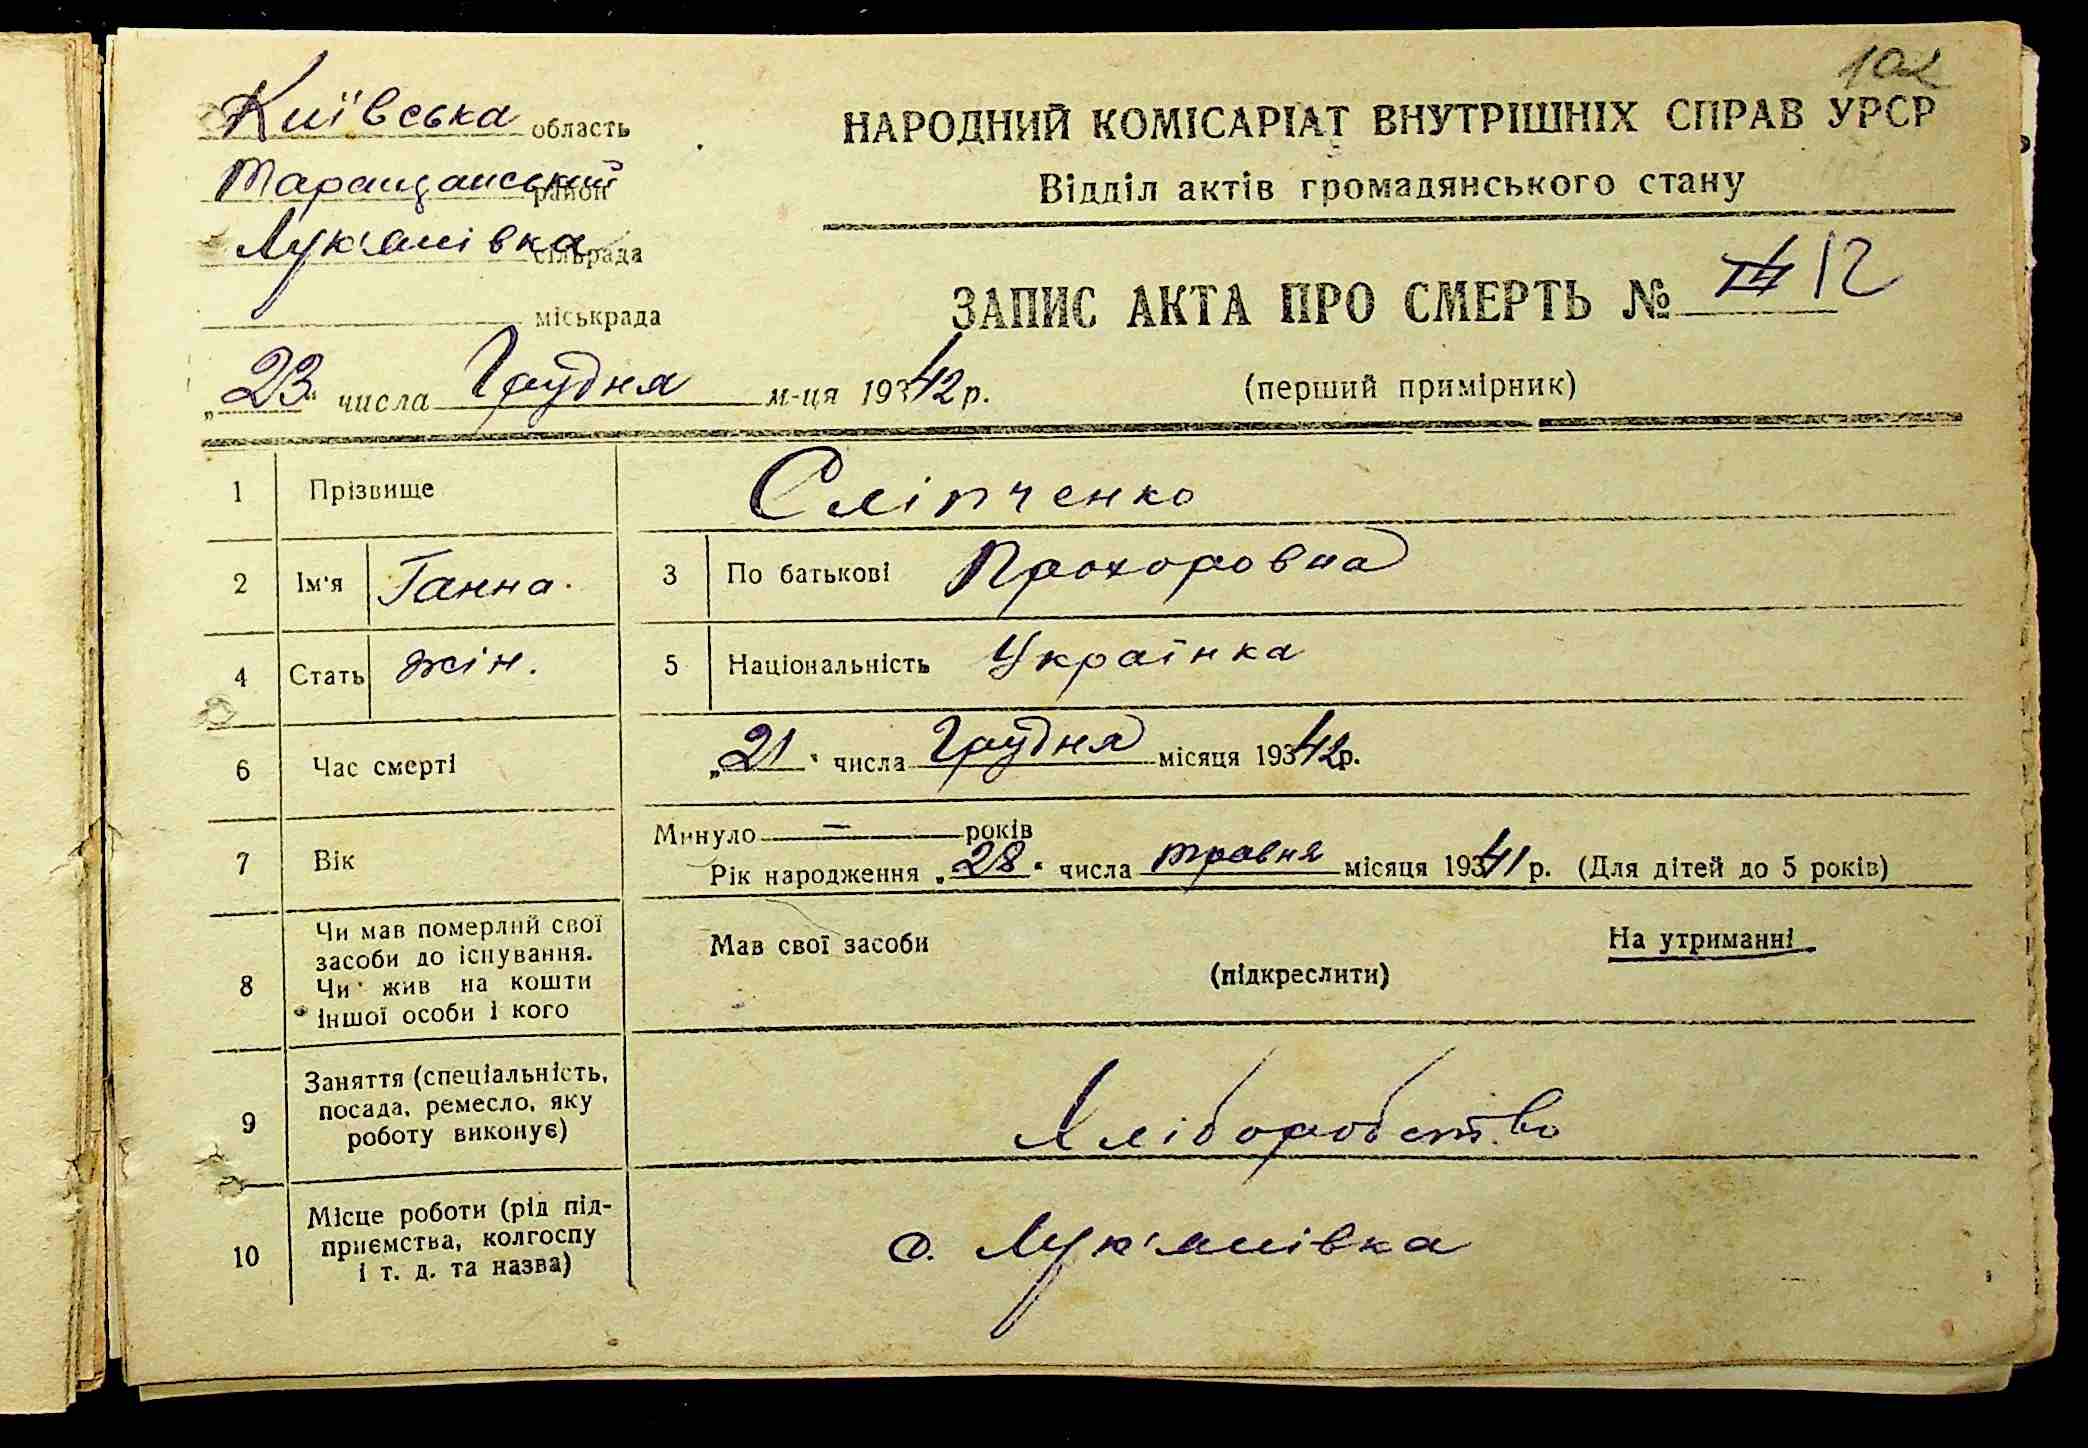 102
Київська область
Таращанський район
Лук'янівка сільрада
міськрада
„23" числа Грудня м-ця 1942 р.
НАРОДНИЙ КОМІСАРІАТ ВНУТРІШНІХ СПРАВ УРСР
Відділ актів громадянського стану
ЗАПИС АКТА ПРО СМЕРТЬ № 12
(перший примірник)
1 Прізвище Сліпченко
2 Ім'я Ганна. 3 По батькові Прохоровна
4 Стать жін. 5 Національність Українка
6 Час смерті „21" числа Грудня місяця 1942 р.
7 Вік Минуло — років
Рік народження „28" числа травня місяця 1941 р. (Для дітей до 5 років)
8 Чи мав померлий свої
засоби до існування.
Чи жив на кошти
іншої особи і кого
Мав свої засоби (підкреслити) На утриманні
9 Заняття (спеціальність,
посада, ремесло, яку
роботу виконує)
Хліборобство
10 Місце роботи (рід під-
приємства, колгоспу
і т. д. та назва)
с. Лук'янівка